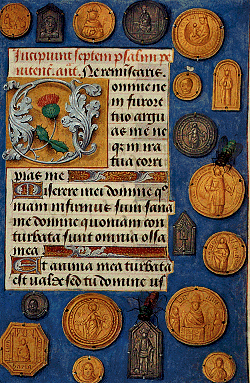 Incipiunt septem psalmi pe
nitenc. ant. Ne reminiscaris.
omine ne
in furore
tuo argu
as me ne
q in ira
tua corri
pias me
Miserere mei domine q
niam infirmus sum sana
me domine quoniam con
turbata sunt omnia ossa
mea
Et anima mea turbata
est valde sed tu domine us